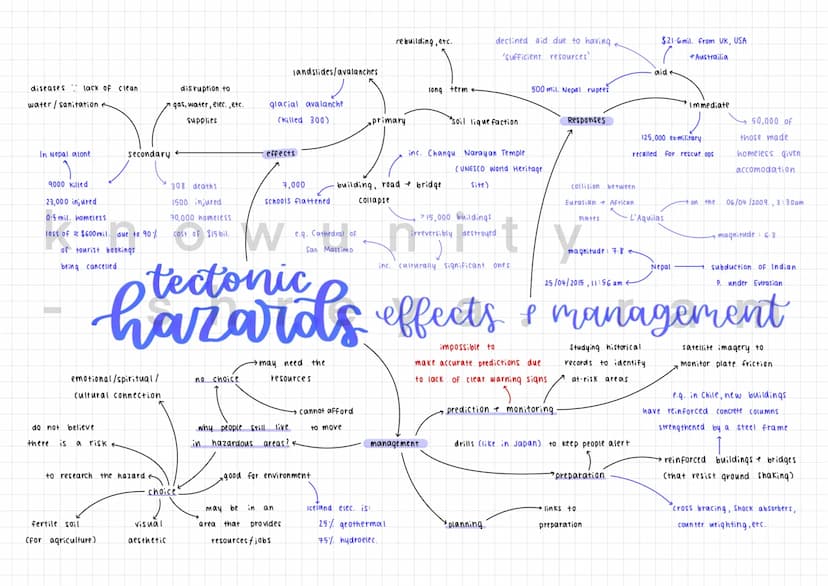 tectonic
hazards effects + management
effects
primary
landslides/avalanches
glacial avalanche
(killed 300)
soil liquefaction
building, road + bridge
collapse
7,000
schools flattened
inc. Changu Narayan Temple
(UNESCO World Heritage
site)
>15,000 buildings
irreversibly destroyed
inc. culturally significant ones
e.g. Cathedral of
San Massimo
secondary
diseases ∵ lack of clean
water/sanitation
disruption to
gas, water, elec., etc.
supplies
In Nepal alone
9000 killed
23,000 injured
0.5 mil. homeless
loss of ≈ $600mil. due to 90%
of tourist bookings
being cancelled
308 deaths
1500 injured
70,000 homeless
cost of $15bil.
Responses
long term
rebuilding, etc.
immediate
aid
declined aid due to having
'sufficient resources'
$21.6mil. from UK, USA
+Australia
500 mil. Nepal rupees
125,000 exmilitary
recalled for rescue ops
50,000 of
those made
homeless given
accomodation
collision between
Eurasian + African
plates
L'Aquilas
on the 06/04/2009, 3:30am
magnitude: 6.3
magnitude: 7.8
Nepal
25/04/2015, 11:56am
subduction of Indian
P. under Eurasian
management
prediction + monitoring
impossible to
make accurate predictions due
to lack of clear warning signs
studying historical
records to identify
at-risk areas
satellite imagery to
monitor plate friction
preparation
drills (like in Japan) to keep people alert
reinforced buildings + bridges
(that resist ground shaking)
e.g. in Chile, new buildings
have reinforced concrete columns
strengthened by a steel frame
cross bracing, shock absorbers,
counter weighting, etc.
planning
links to
preparation
why people still live
in hazardous areas?
no choice
may need the
resources
cannot afford
to move
choice
emotional/spiritual/
cultural connection
do not believe
there is a risk
to research the hazard
fertile soil
(for agriculture)
visual
aesthetic
may be in an
area that provides
resources/jobs
good for environment
Iceland elec. is:
25% geothermal
75% hydroelec.
knowunity